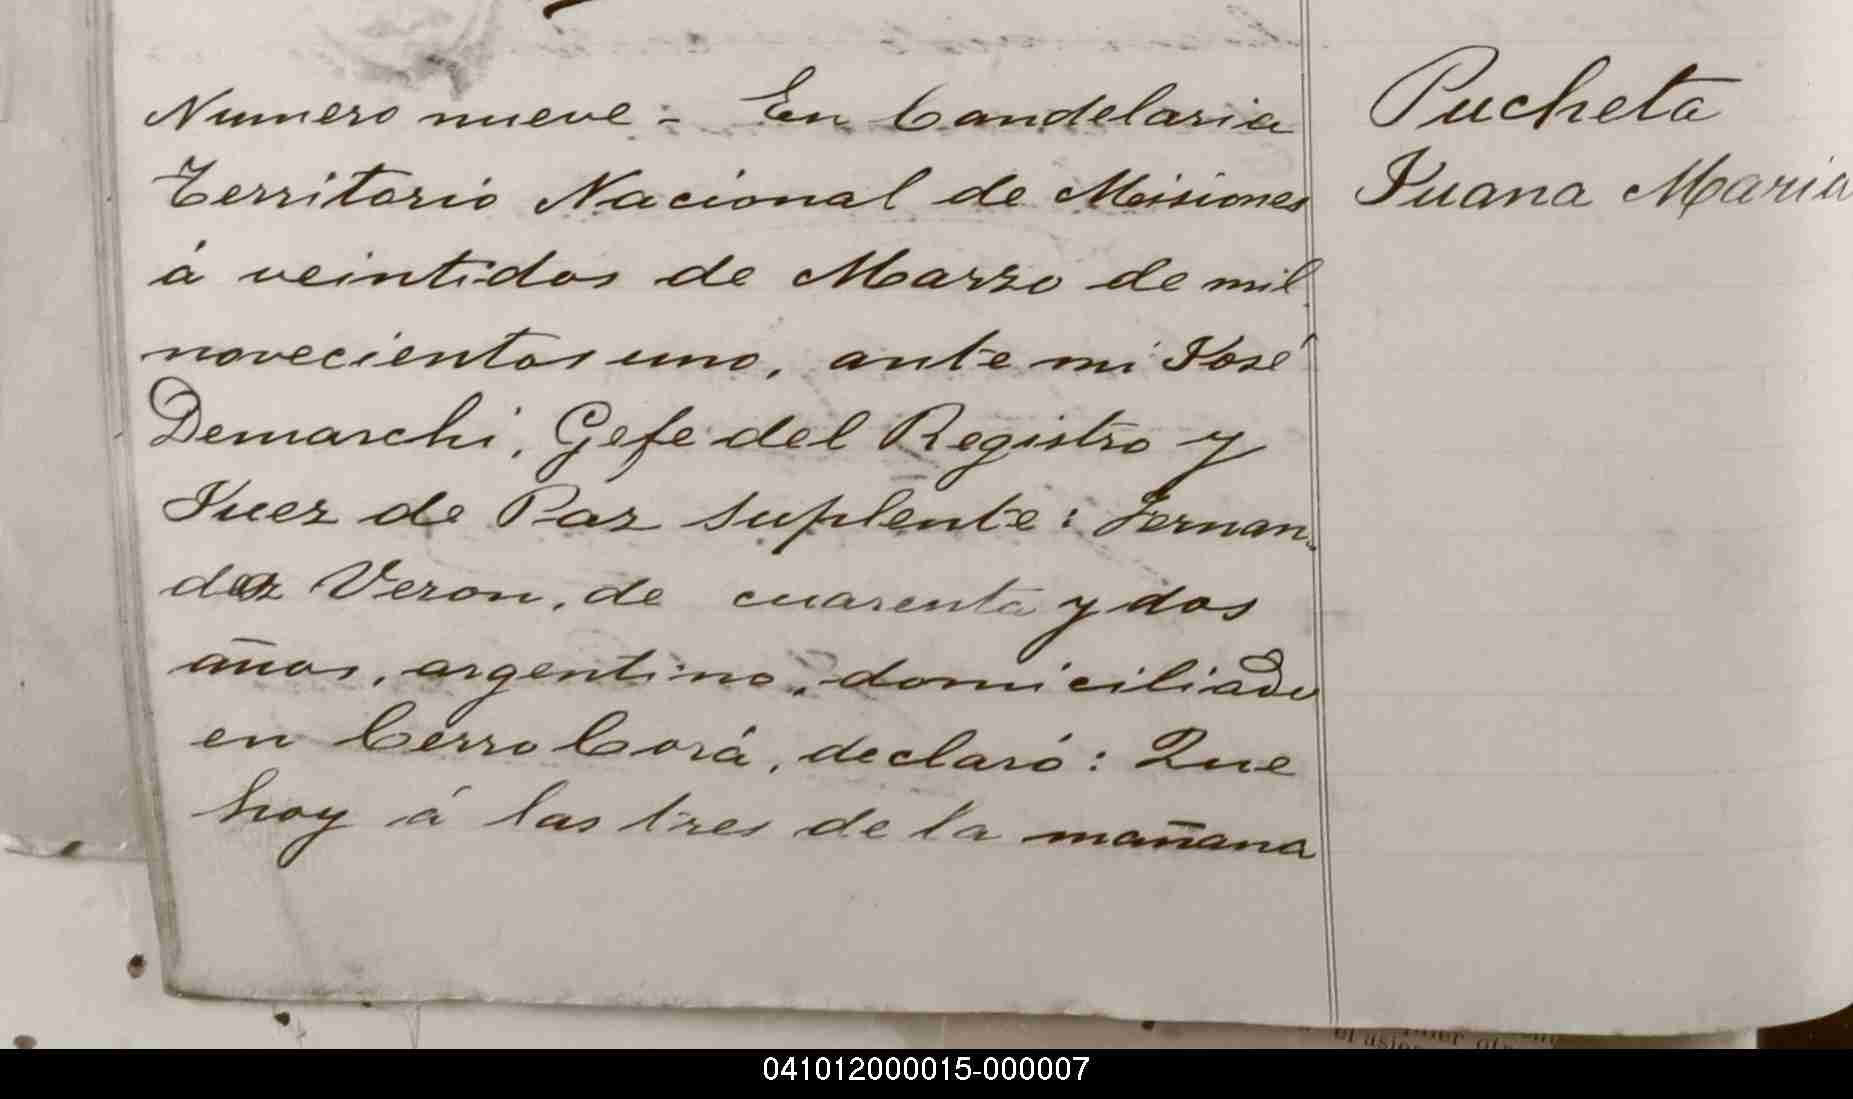 Numero nueve - En Candelaria
Territorio Nacional de Misiones
á veintidos de Marzo de mil
novecientos uno, ante mi José
Demarchi, Gefe del Registro y
Juez de Paz suplente: Fernan-
dez Veron, de cuarenta y dos
años, argentino, domiciliado
en Cerro Corá, declaró: Que
hoy á las tres de la mañana
Pucheta
Juana Maria
041012000015-000007